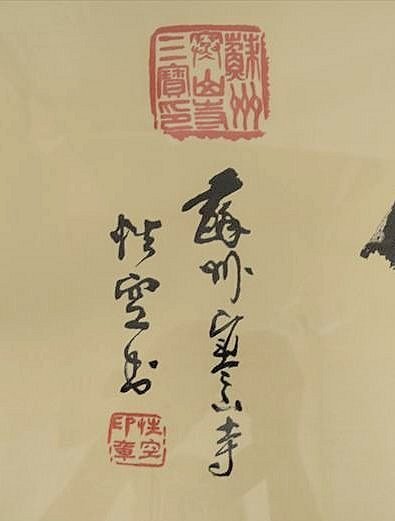 蘇州
寒山寺
三寶印
蘇州寒山寺
性空书
性空
印章